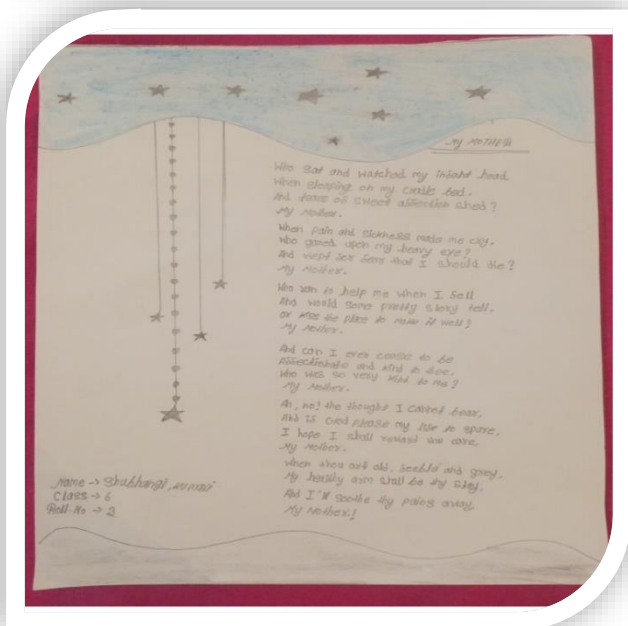 My MOTHER
Who sat and watched my infant head
When sleeping on my cradle bed.
And tears of sweet affection shed?
My Mother.
When pain and sickness made me cry,
Who gazed upon my heavy eye?
And wept for fear that I should die?
My Mother.
Who ran to help me when I fell
And would some pretty story tell.
Or kiss the place to make it well?
My Mother.
And can I ever cease to be
Affectionate and kind to thee,
Who was so very kind to me?
My Mother.
Ah, no! the thought I cannot bear,
And if God please my life to spare,
I hope I shall reward the care,
My Mother.
When thou art old, feeble and grey,
My healthy arm shall be thy stay,
And I'll soothe thy pains away,
My Mother!
Name → Shubhangi
Class → 6
Roll-No → 2